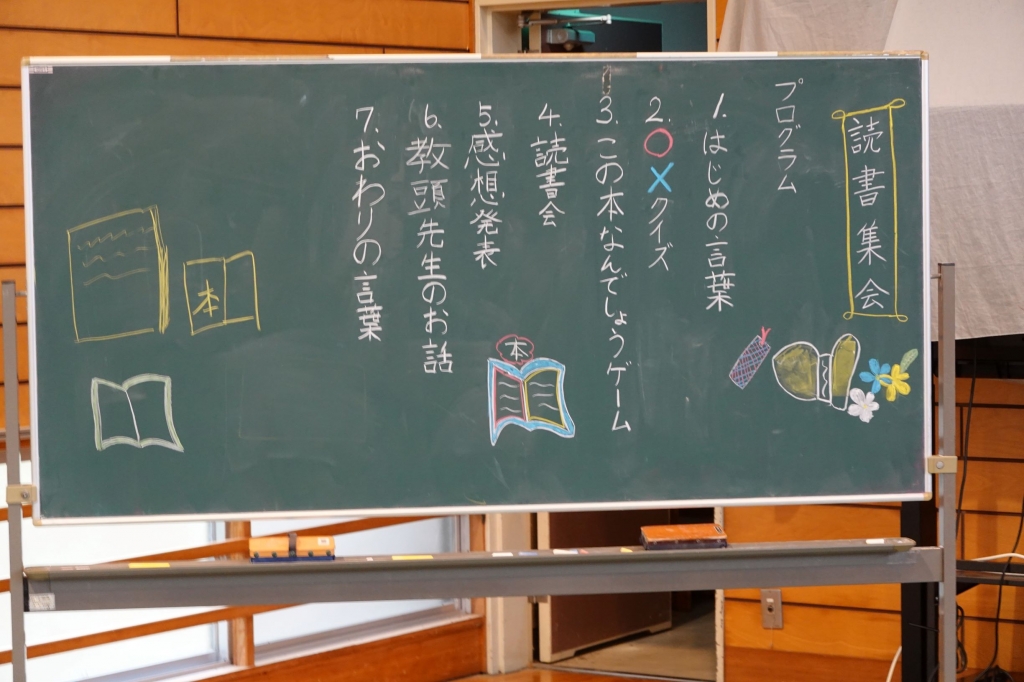 読書集会
プログラム
1.はじめの言葉
2.〇×クイズ
3.この本なんでしょうゲーム
4.読書会
5.感想発表
6.教頭先生のお話
7.おわりの言葉
本
本